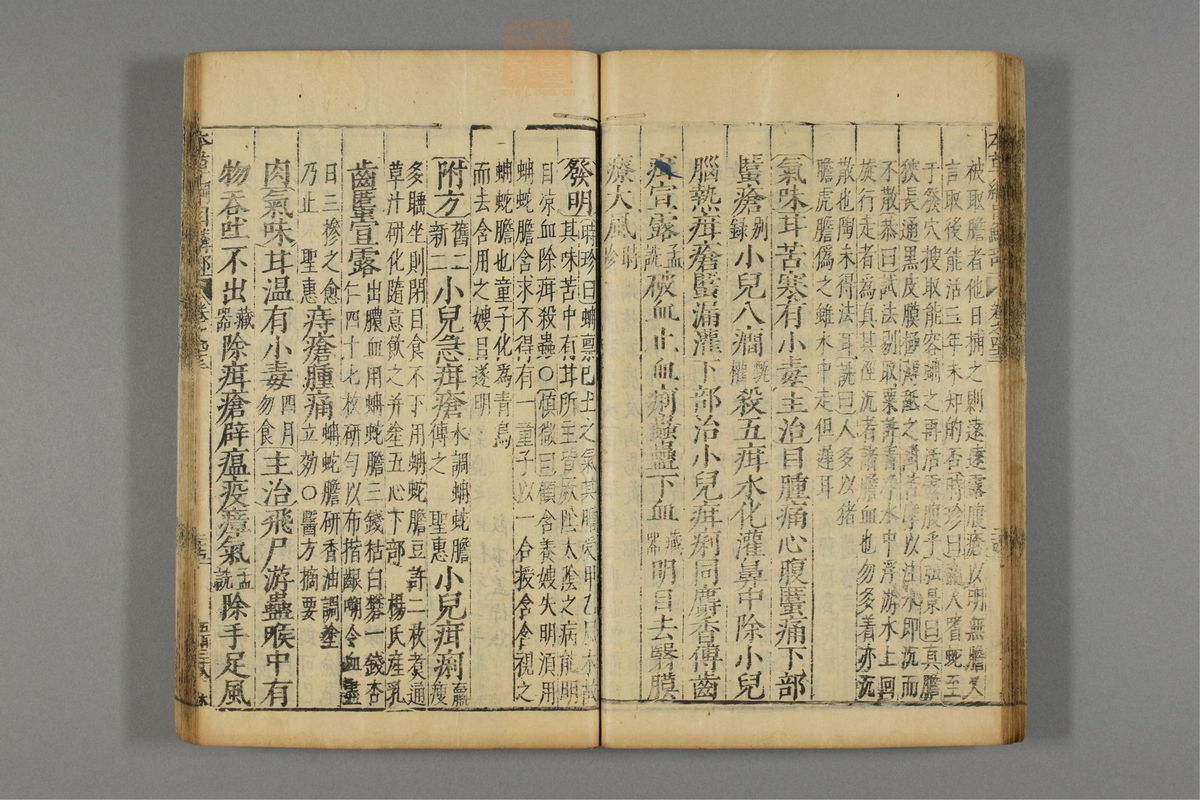 被取膽者他日捕之則遠遠露腹瘡以明無膽又
言取後能活三年未知的否時珍曰南人嗜蛇至
于發穴搜取能容蚺之再活露腹乎弘景曰真膽
狹長通黑皮膜極薄舐之甜苦摩以注水即沉而
不散恭曰試法剔取粟許着淨水中浮游水上回
旋行走者為真其徑沉者諸膽血也勿多着亦沉
散也陶未得法耳詵曰人多以猪
膽虎膽偽之雖水中走但遲耳
氣味甘苦寒有小毒主治目腫痛心腹䘌痛下部
䘌瘡別錄小兒八癇甄權殺五疳水化灌鼻中除小兒
腦熱疳瘡䘌漏灌下部治小兒疳痢同麝香傅齒
疳宣露孟詵破血止血痢蟲蠱下血藏器明目去翳膜
療大風時珍
發明時珍曰蚺禀己土之氣其膽受甲乙風木故
其味苦中有甘所主皆厥陰太陰之病能明
目凉血除疳殺蟲○慎微曰顧含養嫂失明須用
蚺蛇膽含求不得有一童子以一合授含含視之
蚺蛇膽也童子化為青鳥
而去含用之嫂目遂明
附方舊二新二小兒急疳瘡水調蚺蛇膽傅之 聖惠小兒疳痢羸瘦
多睡坐則閉目食不下用蚺蛇膽豆許二枚煑通
草汁研化隨意飲之并塗五心下部 楊氏産乳
齒䘌宣露出膿血用蚺蛇膽三錢枯白礬一錢杏
仁四十七枚研勻以布揩齦嗍令血盡
日三摻之愈
乃止 聖惠痔瘡腫痛蚺蛇膽研香油調塗
立効○醫方摘要
肉氣味甘温有小毒四月勿食主治飛尸游蠱喉中有
物吞吐不出藏器除疳瘡辟瘟疫瘴氣孟詵除手足風